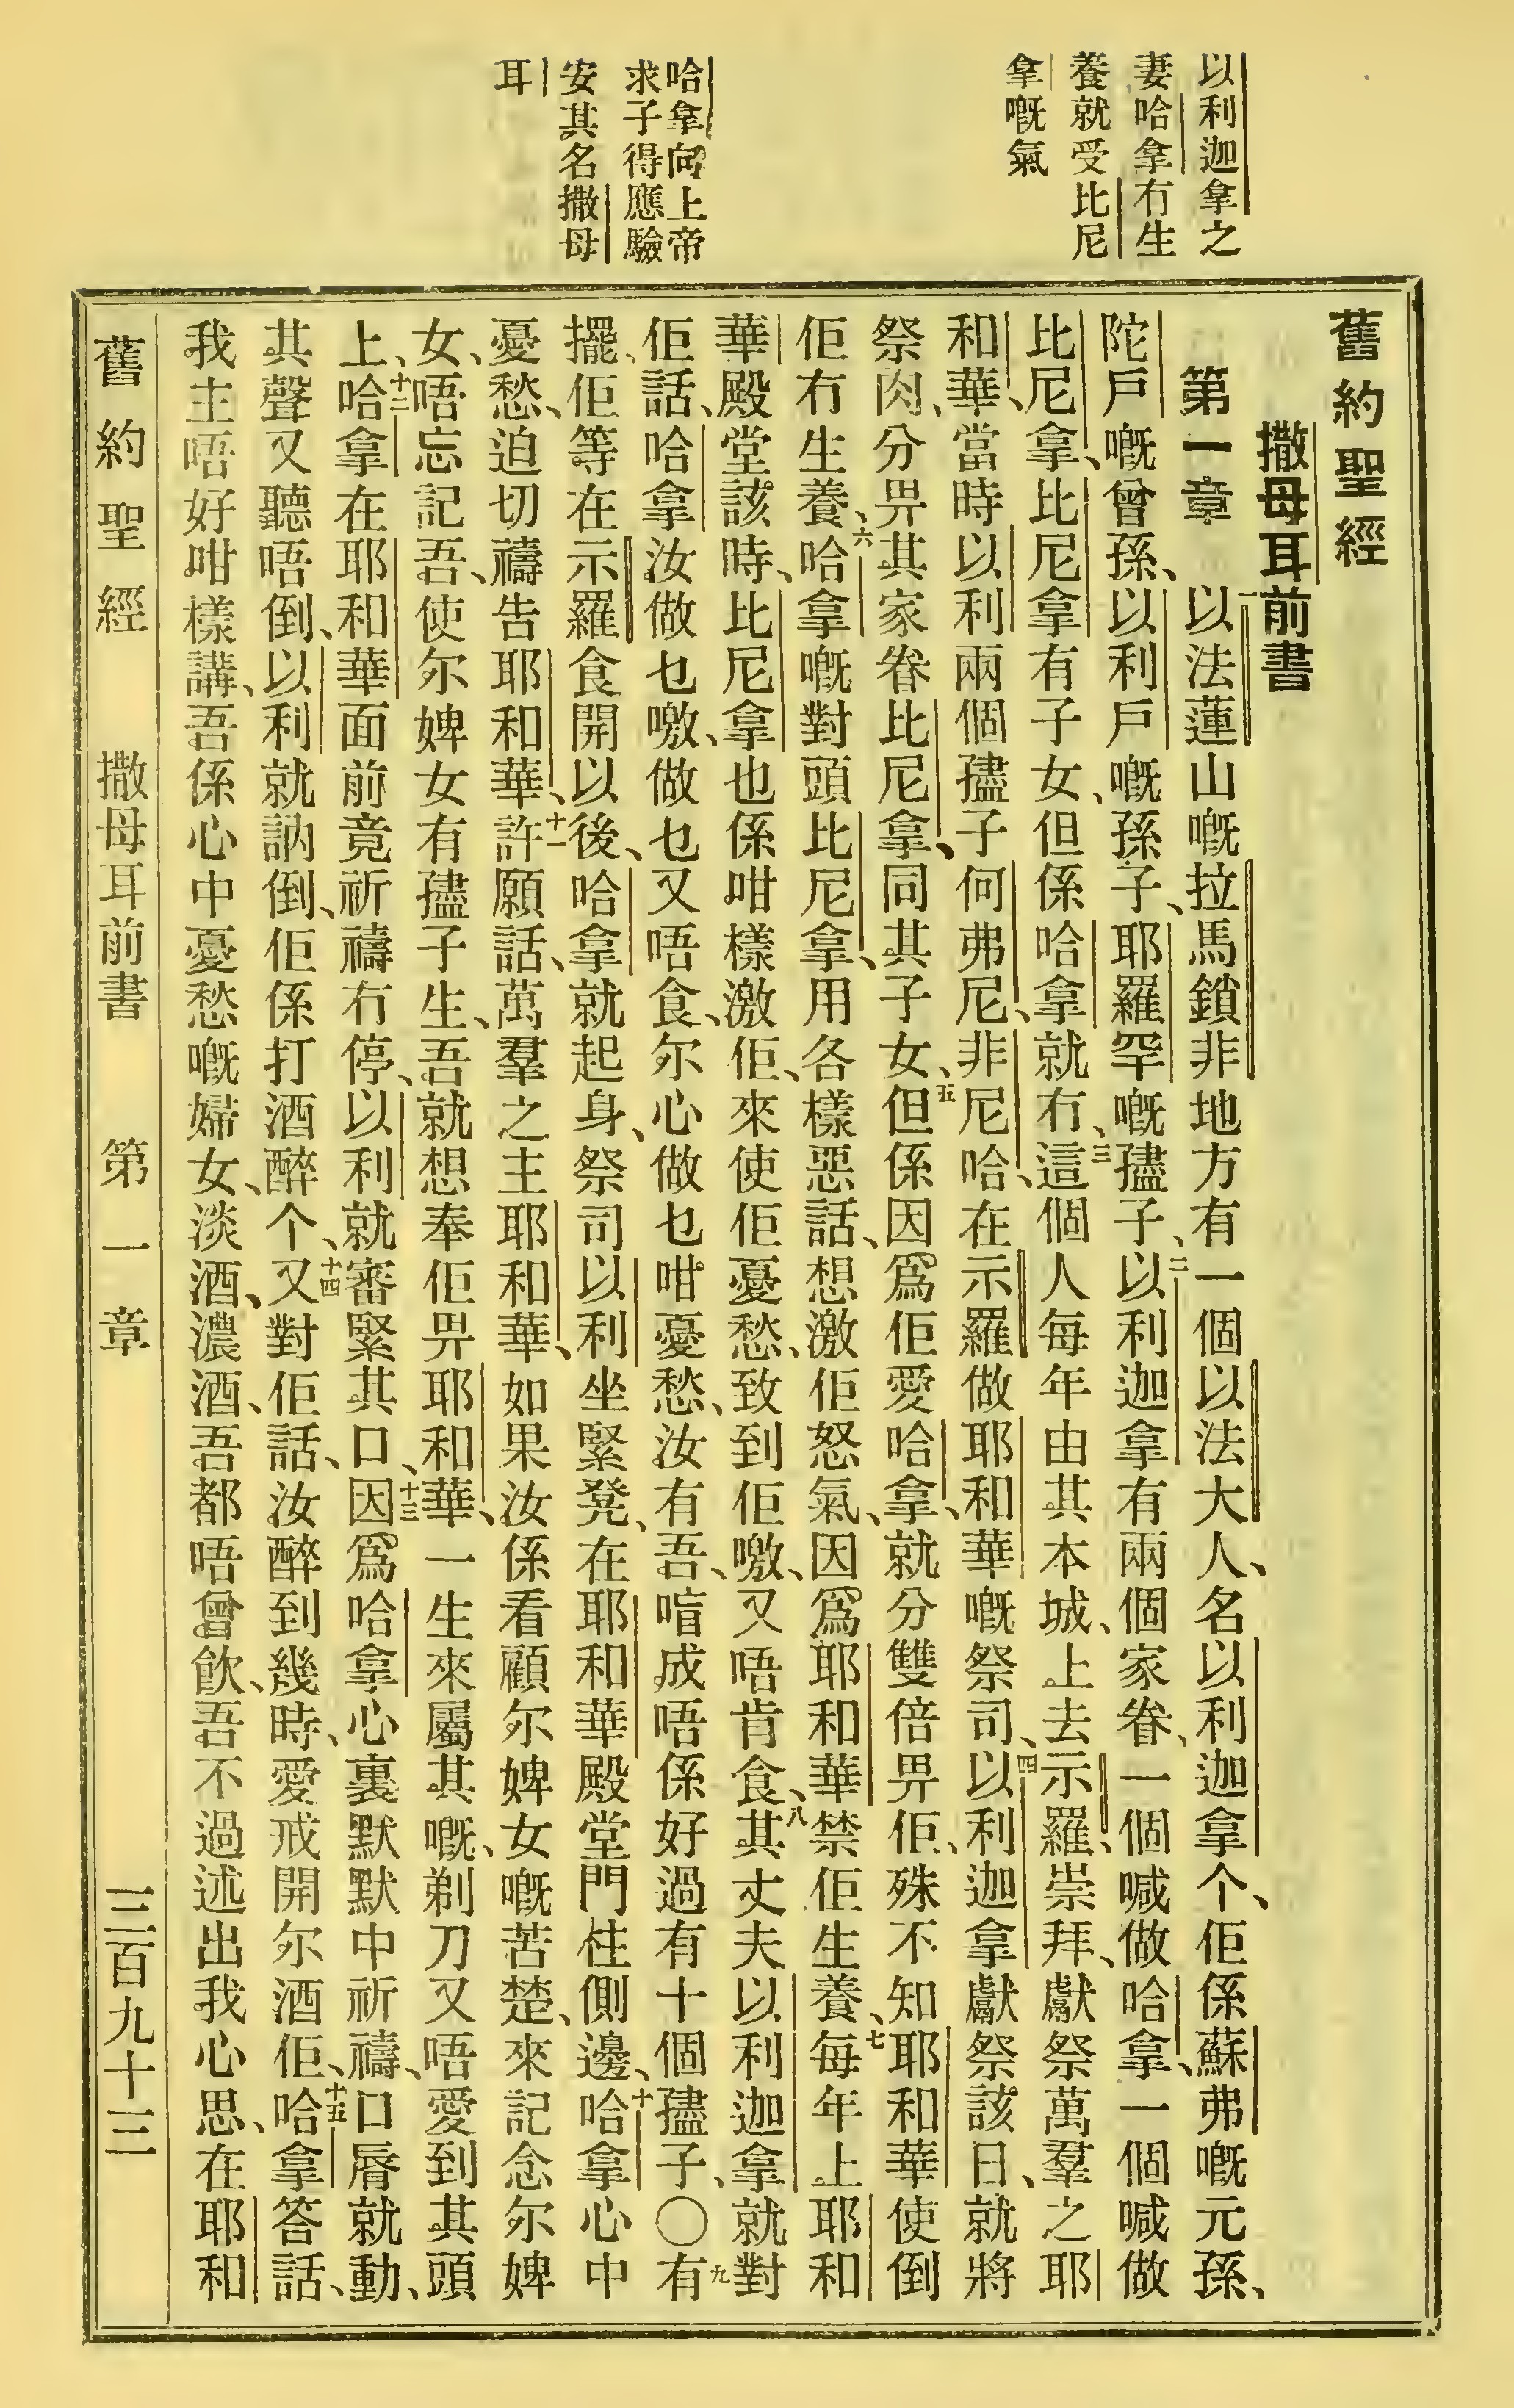 以利迦拿之
妻哈拿冇生
養就受比尼
拿嘅氣
哈拿向上帝
求子得應驗
安其名撒母
耳
舊約聖經
撒母耳前書
第一章 一以法蓮山嘅拉馬鎖非地方有一個以法大人、名以利迦拿个、佢係蘇弗嘅元孫、
陀戶嘅曾孫、以利戶嘅孫子、耶羅罕嘅𡥧子、二以利迦拿有兩個家眷、一個喊做哈拿、一個喊做
比尼拿、比尼拿有子女、但係哈拿就冇、三這個人每年由其本城、上去示羅、崇拜、獻祭萬羣之耶
和華、當時以利兩個𡥧子何弗尼、非尼哈、在示羅做耶和華嘅祭司、四以利迦拿獻祭該日、就將
祭肉、分畀其家眷比尼拿、同其子女、五但係因爲佢愛哈拿、就分雙倍畀佢、殊不知耶和華使倒
佢冇生養、六哈拿嘅對頭比尼拿、用各樣惡話、想激佢怒氣、因爲耶和華禁佢生養、七每年上耶和
華殿堂該時、比尼拿也係咁樣激佢、來使佢憂愁、致到佢噭、又唔肯食、八其丈夫以利迦拿就對
佢話、哈拿汝做乜噭、做乜又唔食、尔心做乜咁憂愁、汝有吾、喑成唔係好過有十個𡥧子、〇九有
擺、佢等在示羅食開以後、哈拿就起身、祭司以利坐緊凳、在耶和華殿堂門柱側邊、十哈拿心中
憂愁、迫切禱告耶和華、十一許願話、萬羣之主耶和華、如果汝係看顧尔婢女嘅苦楚、來記念尔婢
女、唔忘記吾、使尔婢女有𡥧子生、吾就想奉佢畀耶和華、一生來屬其嘅、剃刀又唔愛到其頭
上、十二哈拿在耶和華面前竟祈禱冇停、以利就審緊其口、十三因爲哈拿心裏默默中祈禱、口脣就動、
其聲又聽唔倒、以利就訥倒、佢係打酒醉个、十四又對佢話、汝醉到幾時、愛戒開尔酒佢、十五哈拿答話、
我主唔好咁樣講、吾係心中憂愁嘅婦女、淡酒、濃酒、吾都唔曾飲、吾不過述出我心思、在耶和
舊約聖經 撒母耳前書 第一章 三百九十三